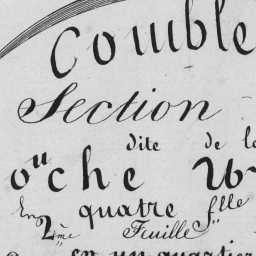 Comble
Section
dite de la
o'che
En quatre f.lle
2ème Feuille
en un quartier